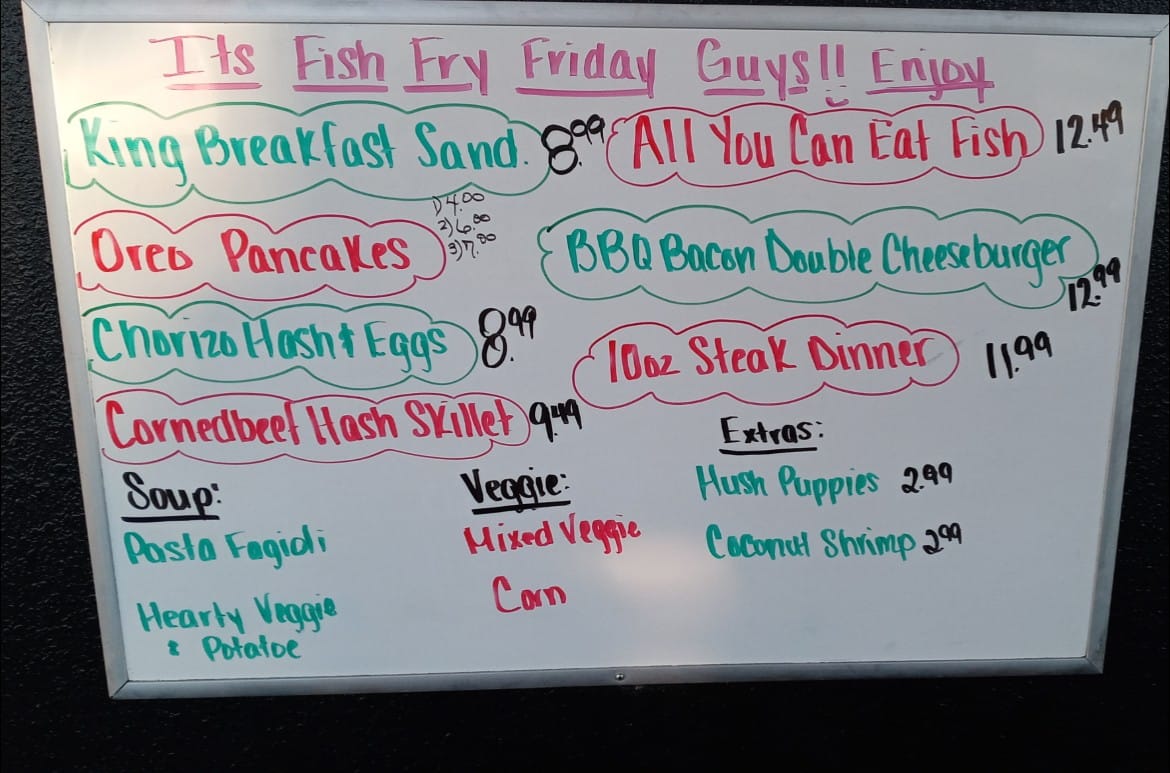 Its Fish Fry Friday Guys!! Enjoy
King Breakfast Sand. 8.99
1) 4.00
2) 6.00
3) 7.00
Oreo Pancakes
Chorizo Hash & Eggs 8.99
Cornedbeef Hash Skillet 9.49
All You Can Eat Fish 12.49
BBQ Bacon Double Cheeseburger
12.99
10oz Steak Dinner 11.99
Soup:
Pasta Fagioli
Hearty Veggie
& Potatoe
Veggie:
Mixed Veggie
Corn
Extras:
Hush Puppies 2.99
Coconut Shrimp 2.99